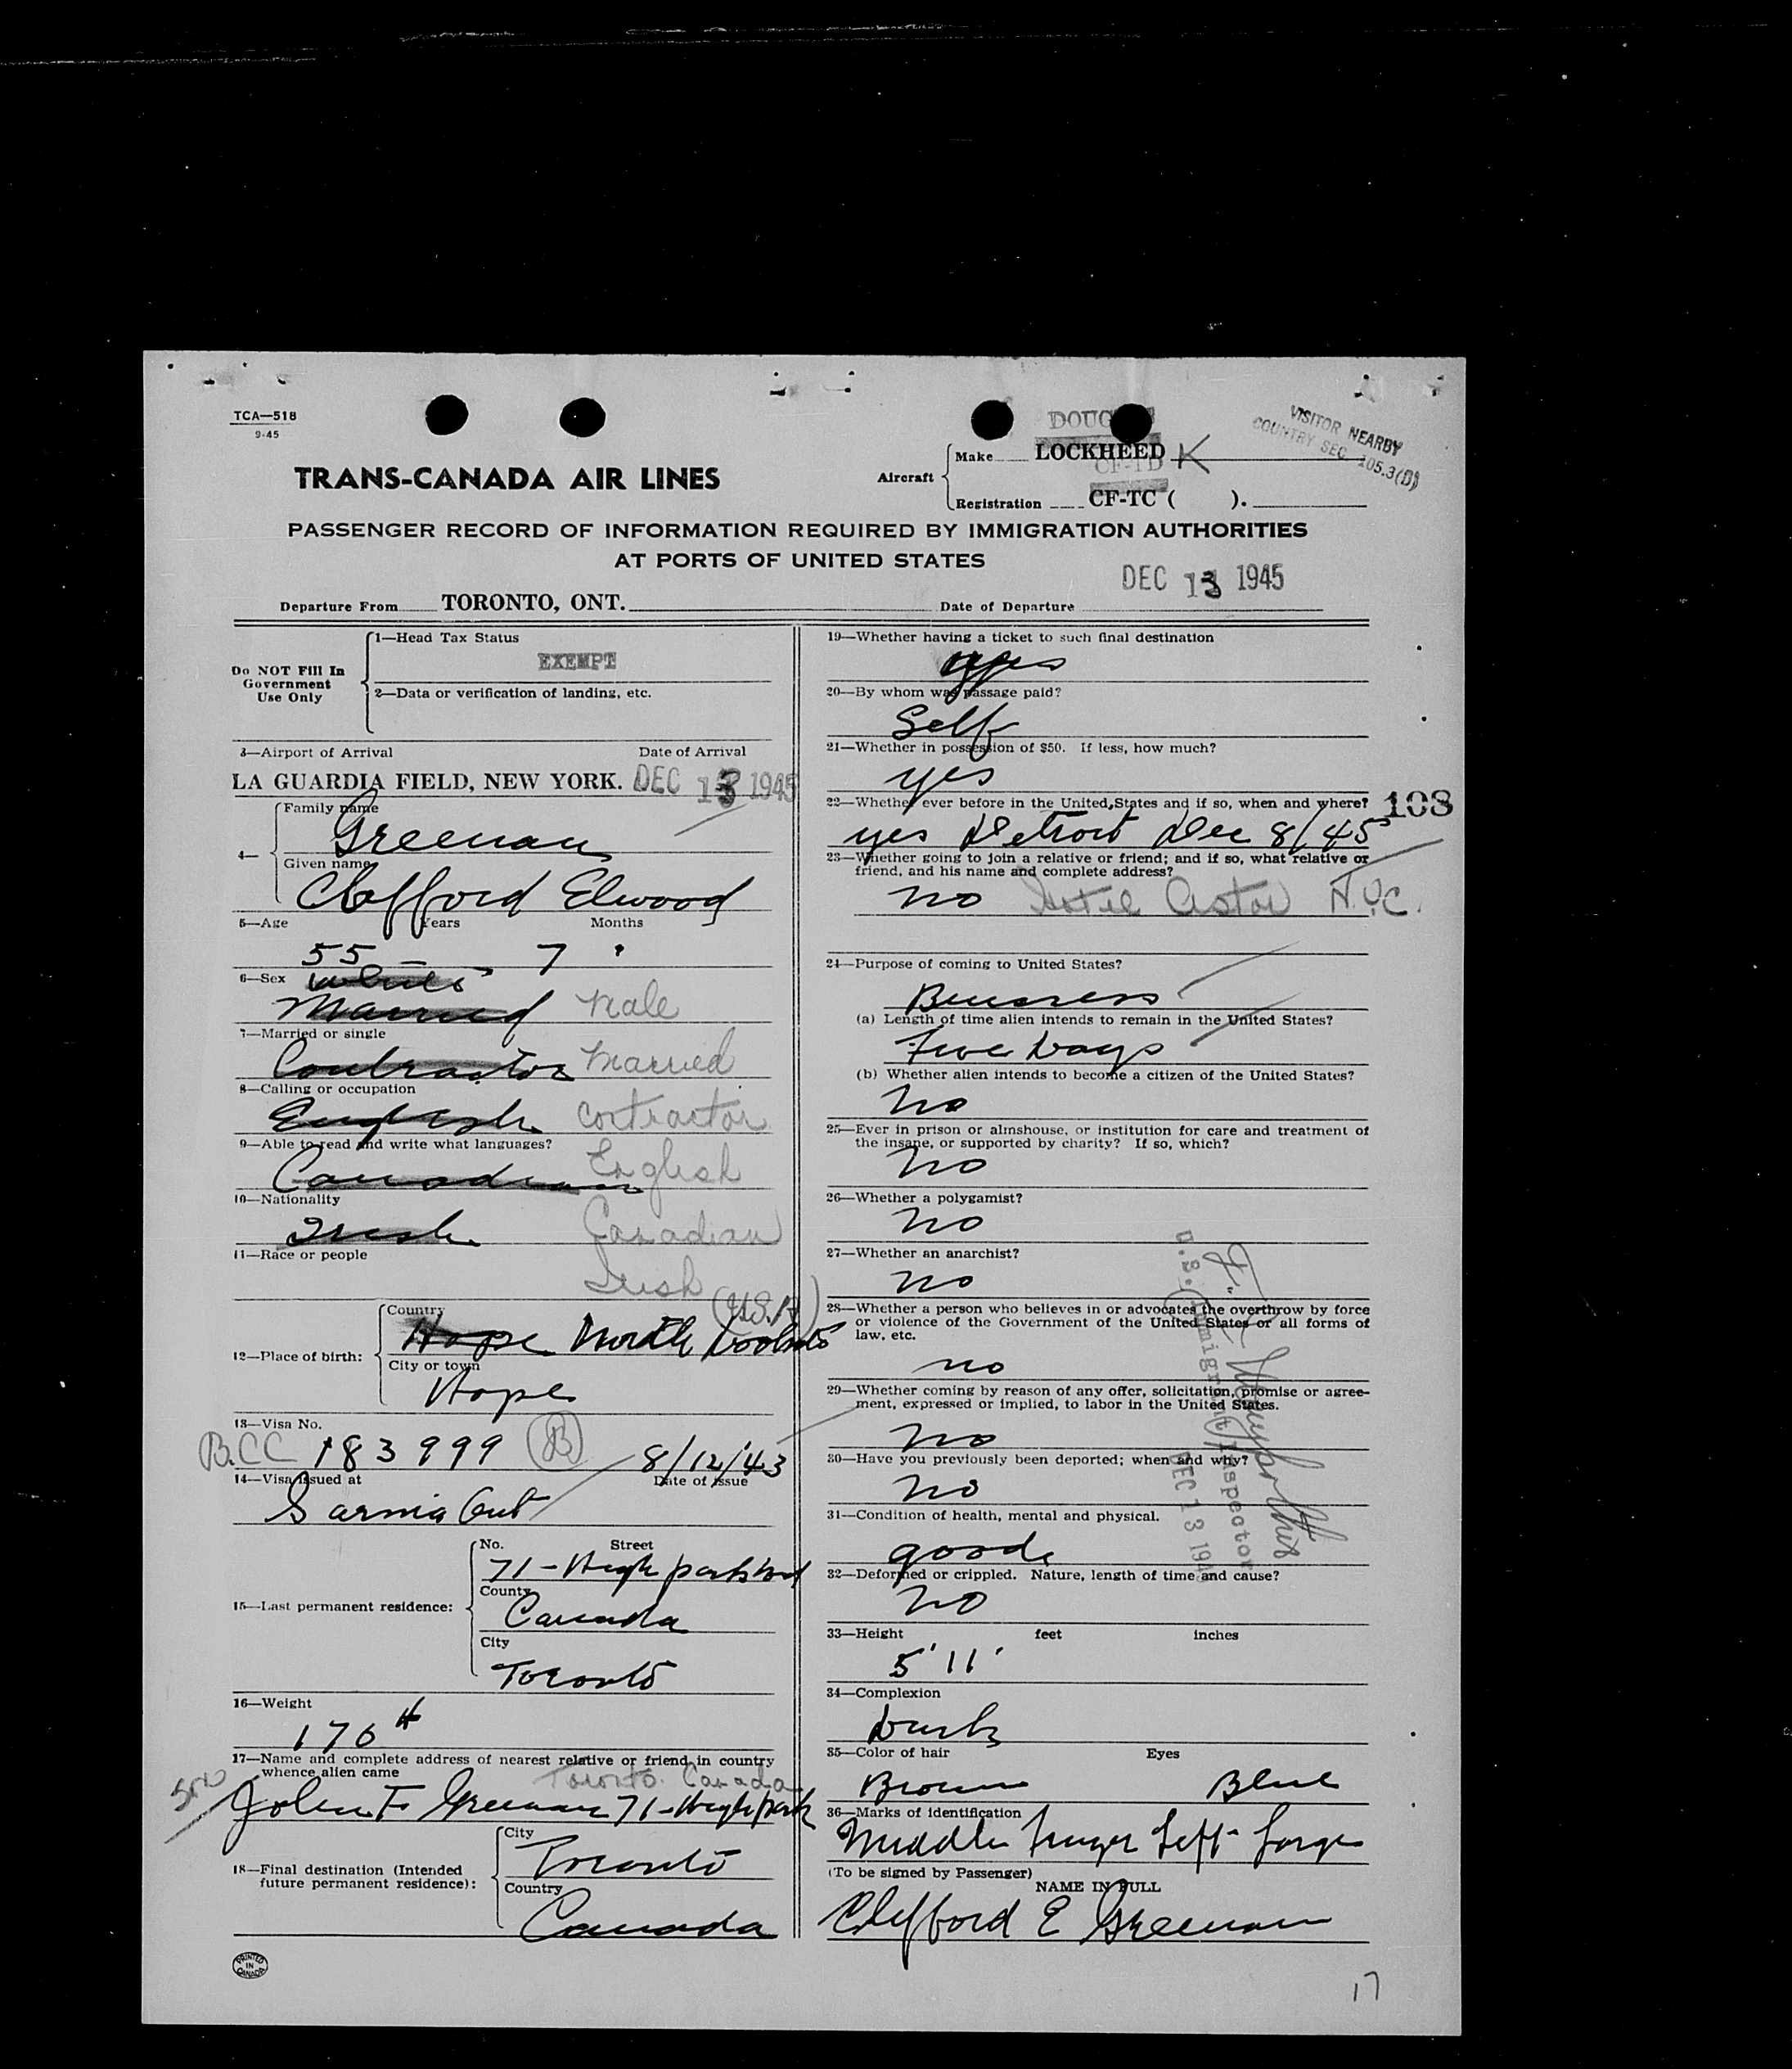 TCA—518
9-45
DOUG
VISITOR NEARBY
COUNTRY SEC. 105.3(B)
TRANS-CANADA AIR LINES
Aircraft
Make LOCKHEED K
CF-TD
Registration CF-TC ( ).
PASSENGER RECORD OF INFORMATION REQUIRED BY IMMIGRATION AUTHORITIES
AT PORTS OF UNITED STATES
DEC 13 1945
Departure From TORONTO, ONT. Date of Departure
Do NOT Fill In
Government
Use Only
1—Head Tax Status
EXEMPT
2—Data or verification of landing, etc.
3—Airport of Arrival Date of Arrival
LA GUARDIA FIELD, NEW YORK. DEC 13 1945
4—
Family name
Greenan
Given name
Clifford Elwood
5—Age Years Months
55 7
6—Sex
White
Married Male
7—Married or single
Contractor Married
8—Calling or occupation
English Contractor
9—Able to read and write what languages?
Canadian English
10—Nationality
Irish Canadian
11—Race or people
Irish
(U.S.A)
12—Place of birth:
Country
Hope North Dakota
City or town
Hope
13—Visa No.
B.C.C 183999 (B) 8/12/43
14—Visa issued at Date of issue
Sarnia Ont
15—Last permanent residence:
No. Street
71 - High park
County
Canada
City
Toronto
16—Weight
176 #
17—Name and complete address of nearest relative or friend in country
whence alien came
Toronto. Canada
son
John F Greenan 71 - High park
18—Final destination (Intended
future permanent residence):
City
Toronto
Country
Canada
PRINTED
IN
CANADA
19—Whether having a ticket to such final destination
yes
20—By whom was passage paid?
Self
21—Whether in possession of $50. If less, how much?
yes
22—Whether ever before in the United States and if so, when and where?
103
yes Detroit Dec 8/45
23—Whether going to join a relative or friend; and if so, what relative or
friend, and his name and complete address?
no Hotel Astor N.Y.C.
24—Purpose of coming to United States?
Business
(a) Length of time alien intends to remain in the United States?
Five Days
(b) Whether alien intends to become a citizen of the United States?
no
25—Ever in prison or almshouse, or institution for care and treatment of
the insane, or supported by charity? If so, which?
no
26—Whether a polygamist?
no
27—Whether an anarchist?
no
28—Whether a person who believes in or advocates the overthrow by force
or violence of the Government of the United States or all forms of
law, etc.
no
29—Whether coming by reason of any offer, solicitation, promise or agree-
ment, expressed or implied, to labor in the United States.
no
30—Have you previously been deported; when and why?
no
31—Condition of health, mental and physical.
good
32—Deformed or crippled. Nature, length of time and cause?
no
U.S. Immigrant Inspector
DEC 13 194
33—Height feet inches
5' 11'
34—Complexion
Dark
35—Color of hair Eyes
Brown Blue
36—Marks of identification
Middle finger left
(To be signed by Passenger)
NAME IN FULL
Clifford E Greenan
17